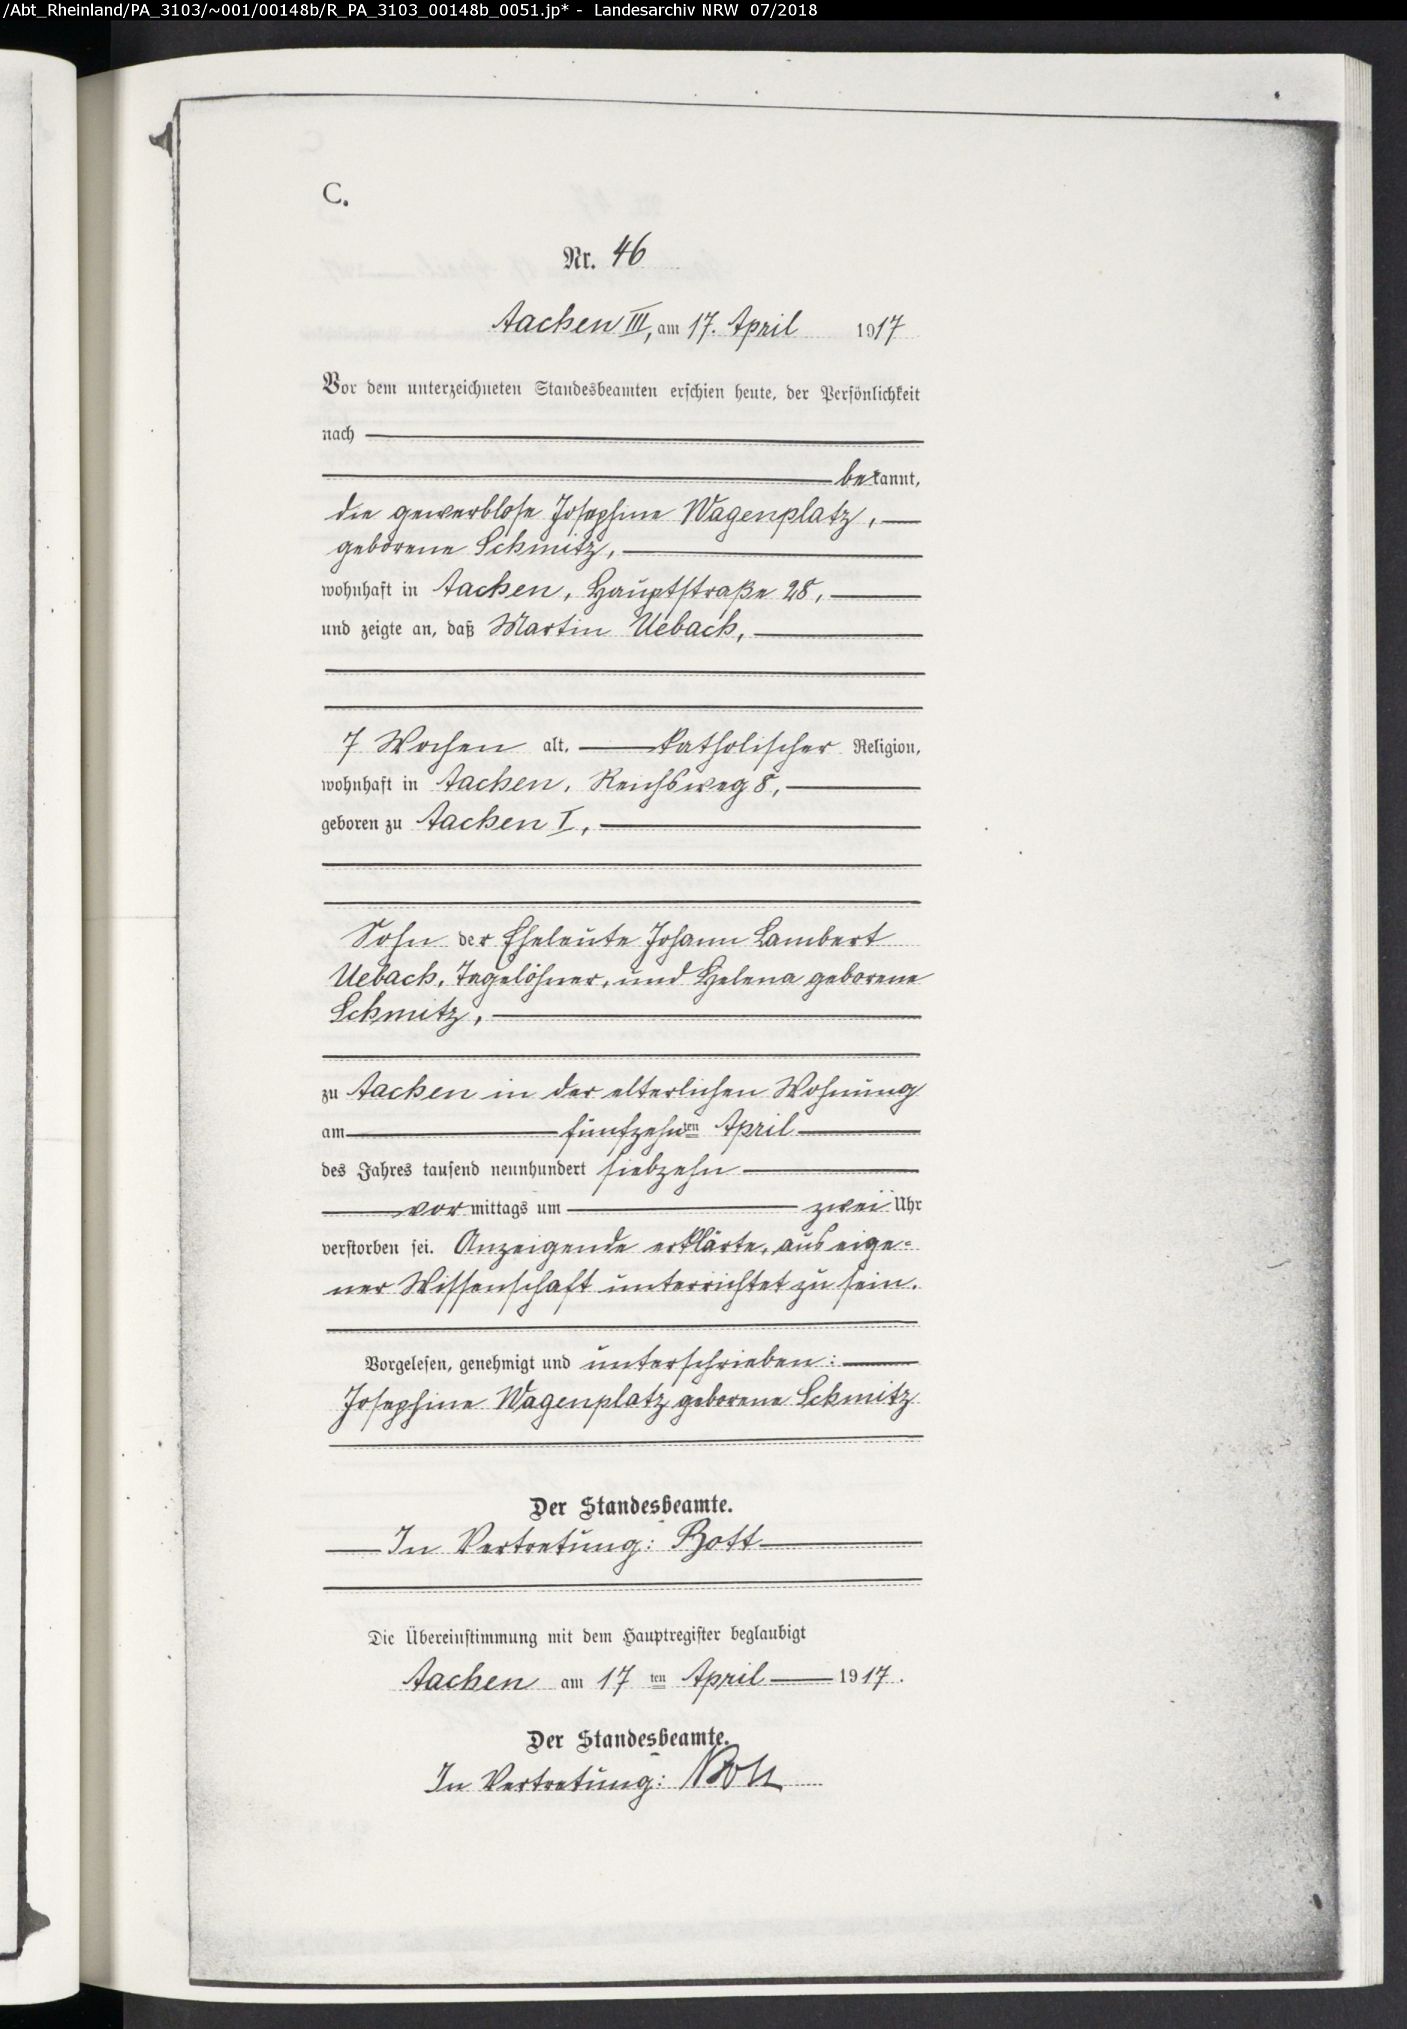 /Abt_Rheinland/PA_3103/~001/00148b/R_PA_3103_00148b_0051.jp* - Landesarchiv NRW 07/2018
C.
Nr. 46
Aachen III, am 17. April 1917
Vor dem unterzeichneten Standesbeamten erschien heute, der Persönlichkeit
nach
bekannt,
die gewerblose Josephine Wagenplatz,
geborene Schmitz,
wohnhaft in Aachen, Hauptstraße 28,
und zeigte an, daß Martin Uebach,
7 Wochen alt, katholischer Religion,
wohnhaft in Aachen, Reichsweg 8,
geboren zu Aachen I,
Sohn der Eheleute Johann Lambert
Uebach, Tagelöhner, und Helena geborene
Schmitz,
zu Aachen in der elterlichen Wohnung
am fünfzehnten April
des Jahres tausend neunhundert siebzehn
vormittags um zwei Uhr
verstorben sei. Anzeigende erklärte, aus eige=
ner Wissenschaft unterrichtet zu sein.
Vorgelesen, genehmigt und unterschrieben:
Josephine Wagenplatz geborene Schmitz
Der Standesbeamte.
In Vertretung: Bott
Die Übereinstimmung mit dem Hauptregister beglaubigt
Aachen am 17ten April 1917.
Der Standesbeamte.
In Vertretung: Bott